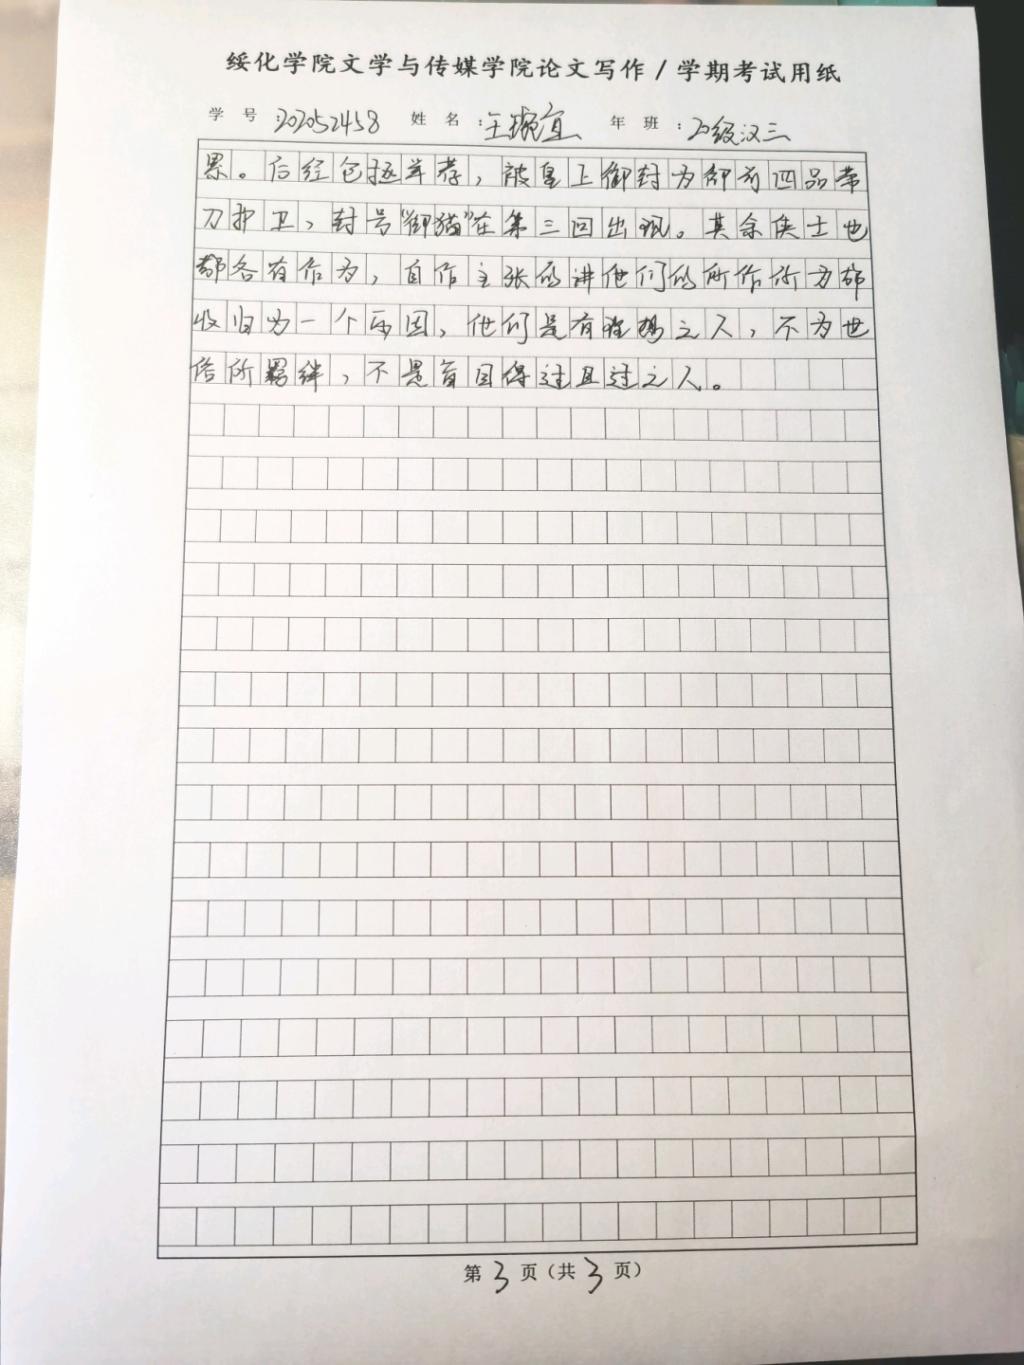 绥化学院文学与传媒学院论文写作/学期考试用纸
学号:202052458 姓名:王婉宜 年班:20级汉三
累。后经包拯举荐，被皇上御封为御前四品带
刀护卫，封号“御猫”在第三回出现。其余侠士也
都各有作为，自作主张的讲他们的所作所为都
收归为一个原因，他们是有理想之人，不为世
俗所羁绊，不是盲目得过且过之人。
第3页(共3页)